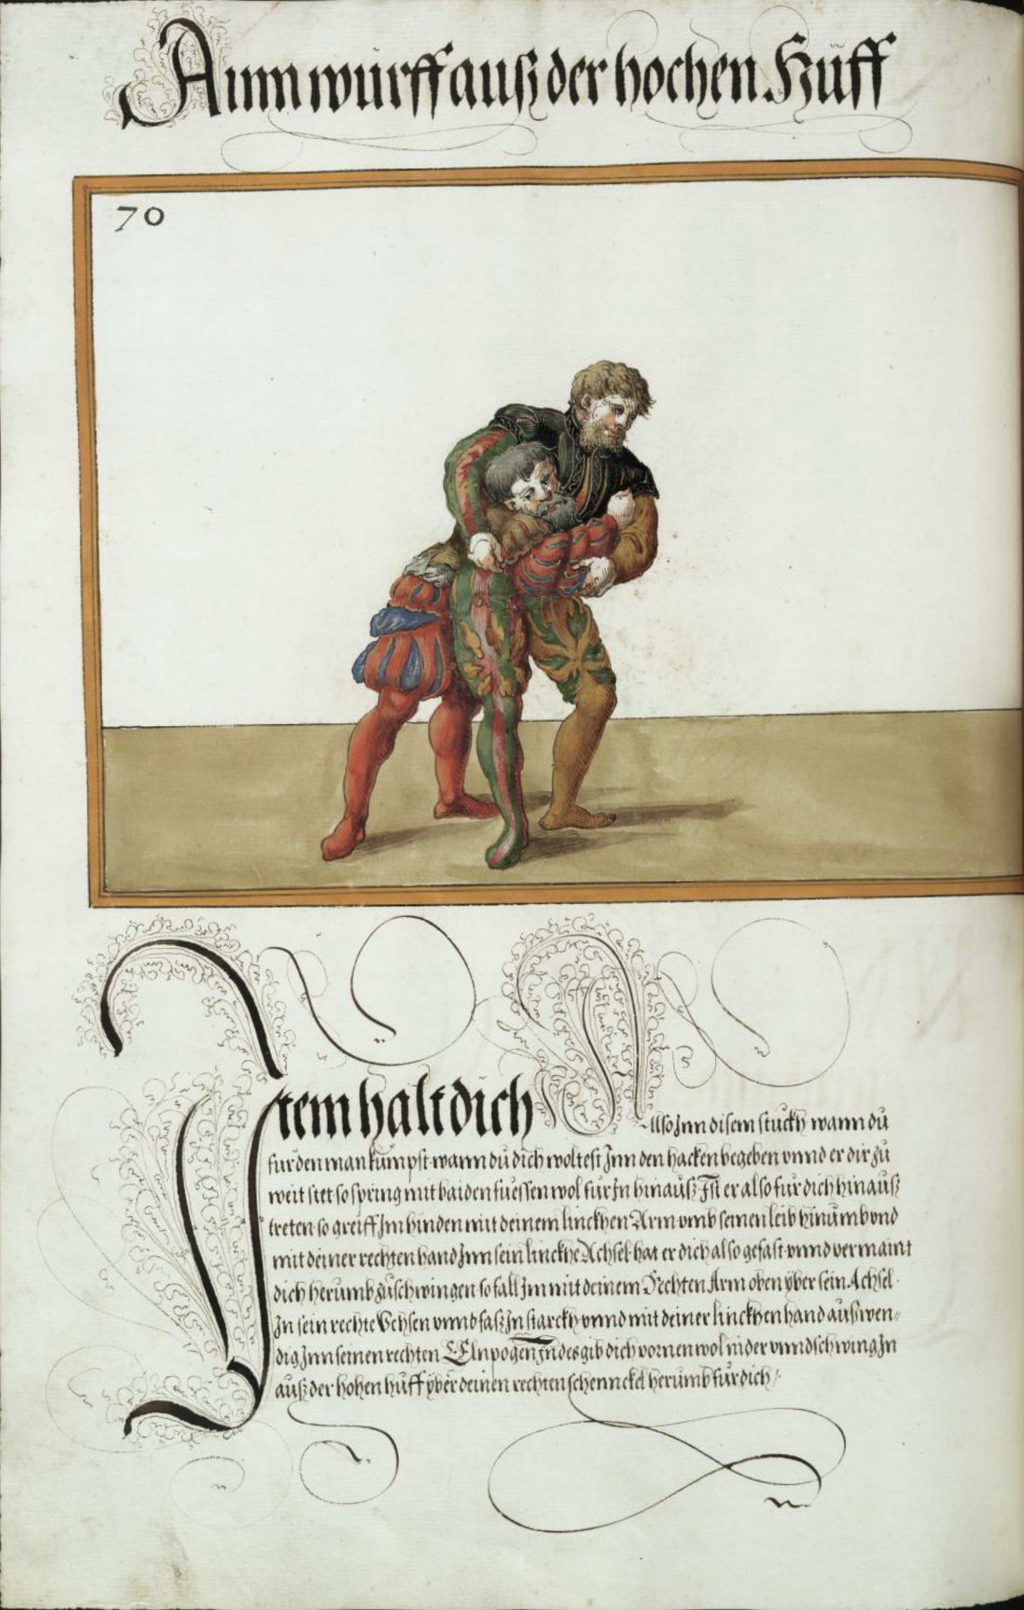 Ainn wurff auß der hochen Hüff
70
Item halt dich
Also Inn disem stuckh wann du
für den man kumpst wann du dich woltest Inn den hacken begeben vnnd er dir zu
weit stet so spring mit baiden fuessen wol für In hinauß Ist er also für dich hinauß
tretten so greiff Im hinden mit deinem linckhen Arm vmb seinen leib hinumb vnd
mit deiner rechten hand Inn sein linckhe Achsel hat er dich also gefast vnnd vermaint
dich herumb zuschwingen so fall Im mit deinem Rechten Arm oben yber sein Achsel
In sein rechte Vchsen vnnd fass In starckh vnnd mit deiner linckhen hand außwen-
dig Inn seinen rechten Elnpogen Indes gib dich vornen wol nider vnnd schwing In
auß der hohen hüff yber deinen rechten schennckel herumb für dich